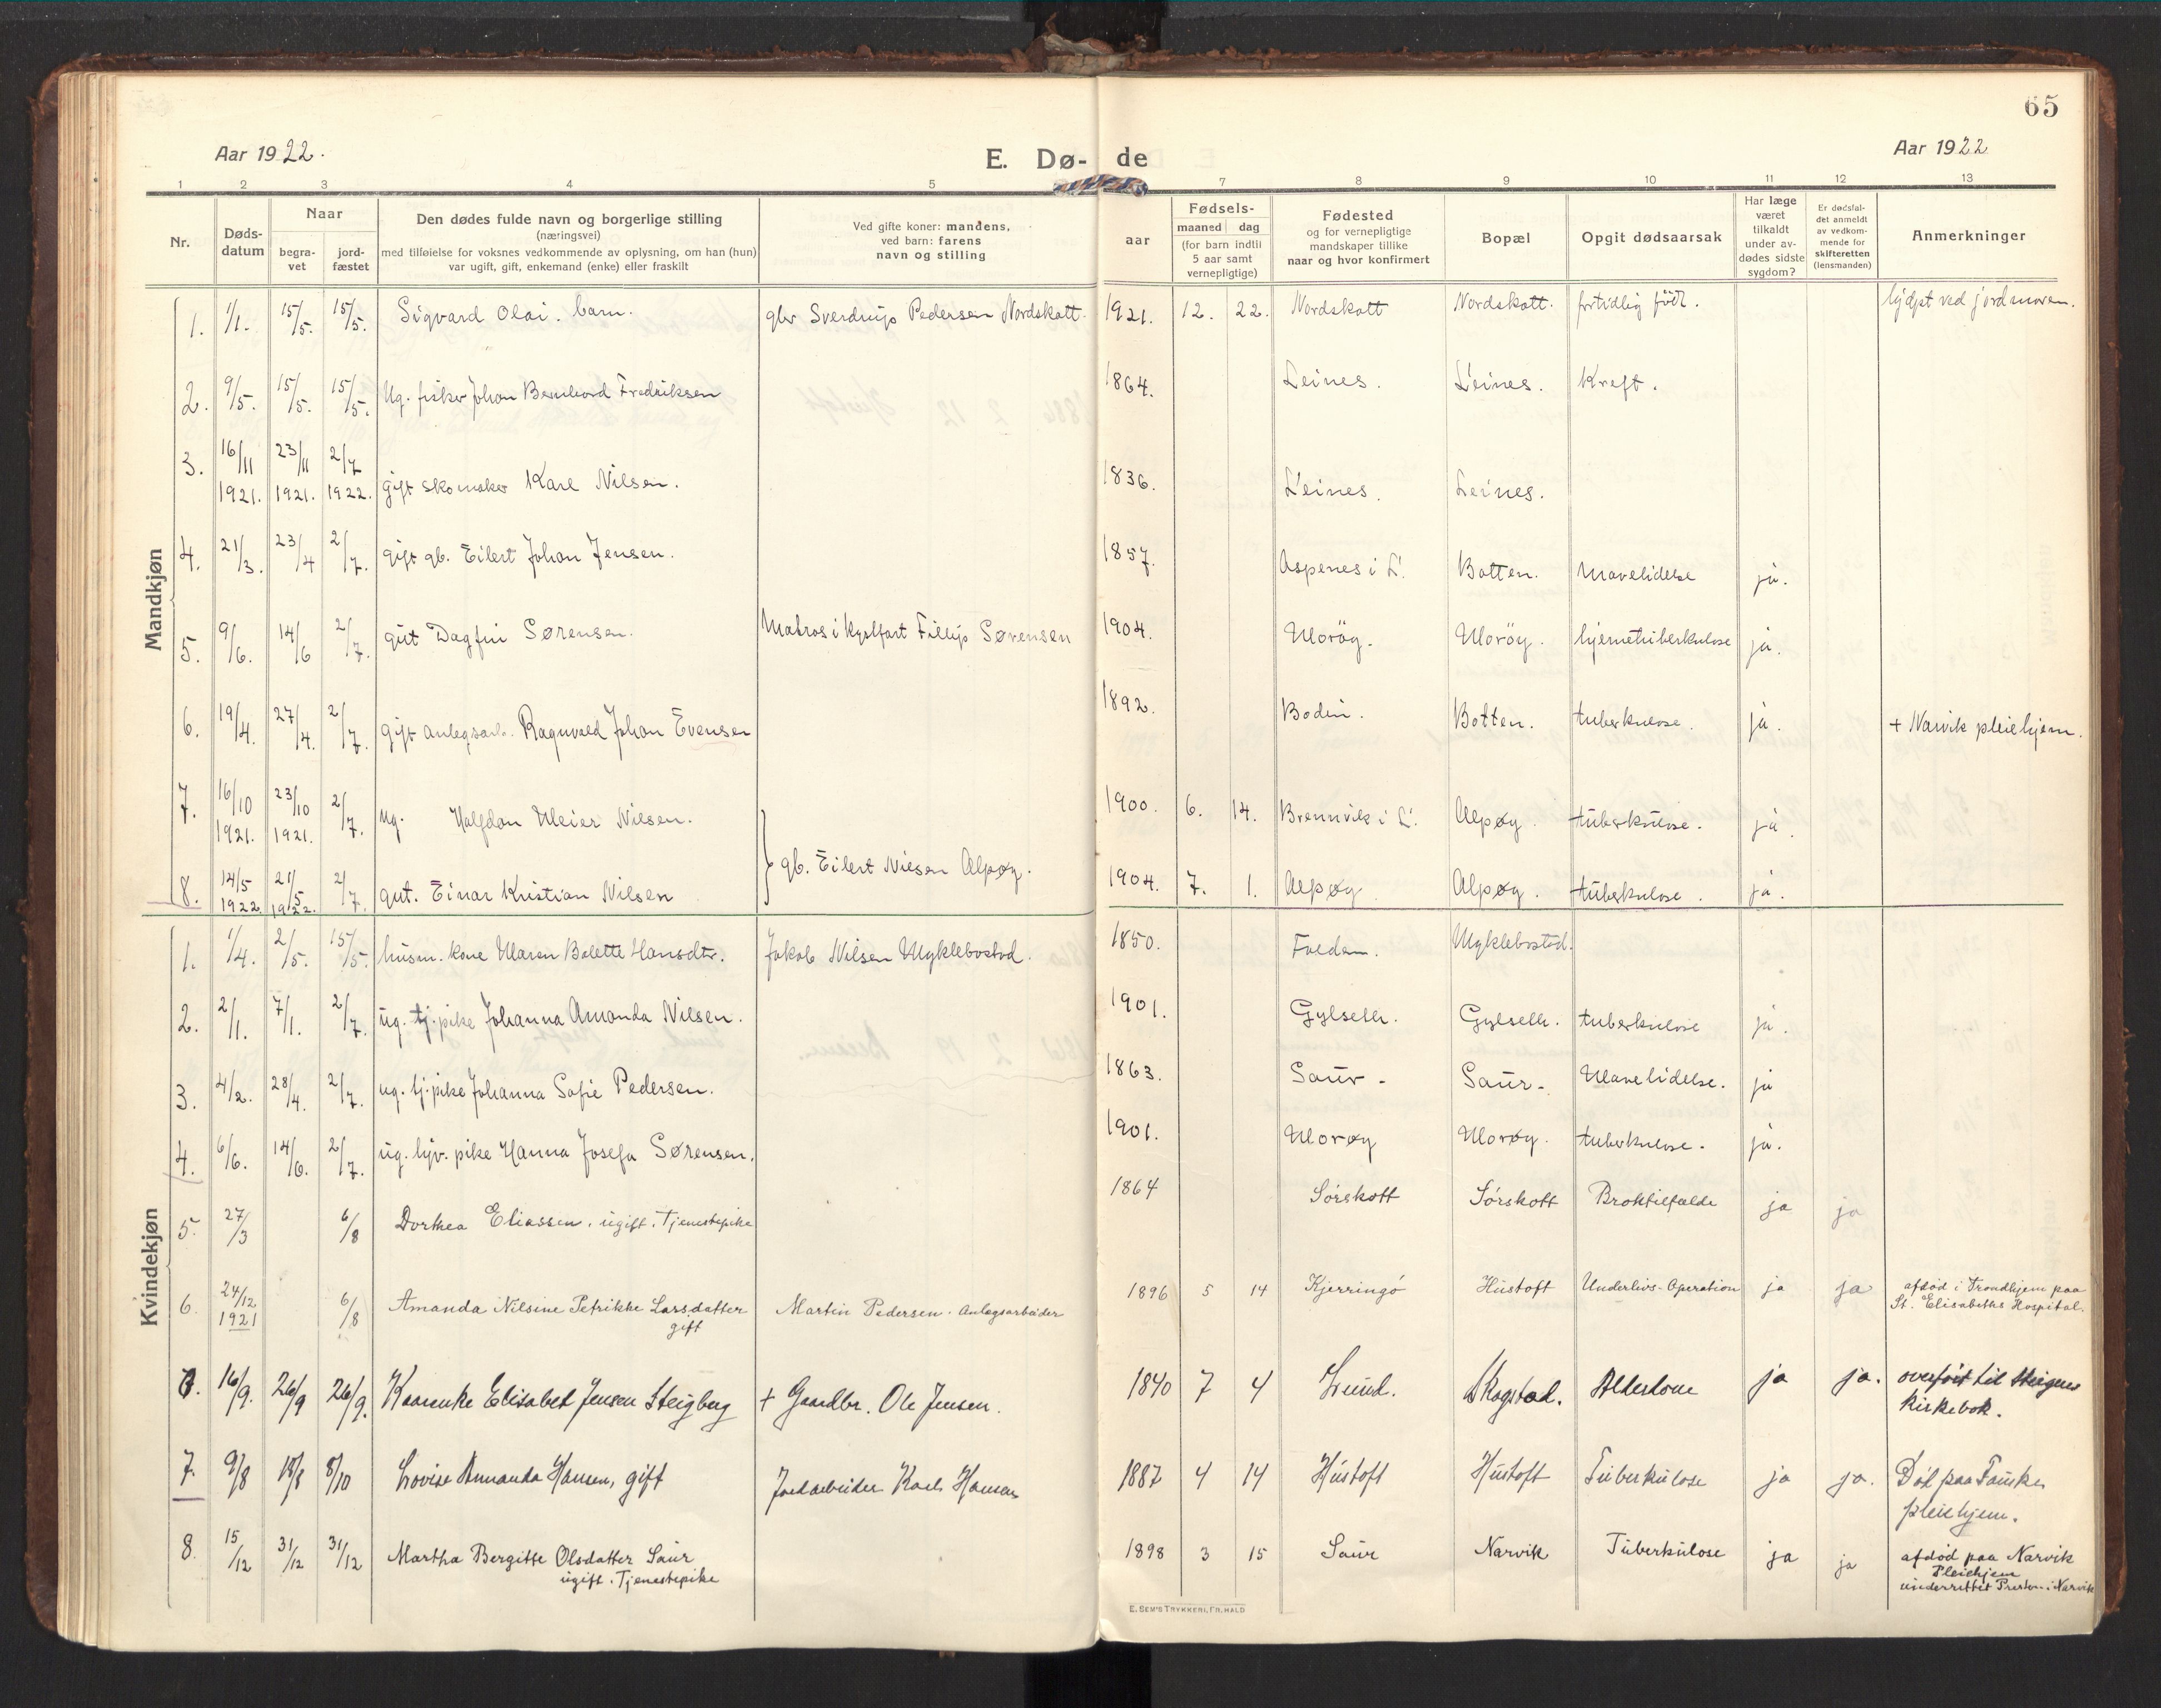 65
Aar 1922.
E. Dø- de
Aar 1922
1 2 3 4 5 7 8 9 10 11 12 13
Nr.
Døds-
datum
Naar
begra-
vet
jord-
fæstet
Den dødes fulde navn og borgerlige stilling
(næringsvei)
med tilføielse for voksnes vedkommende av oplysning, om han (hun)
var ugift, gift, enkemand (enke) eller fraskilt
Ved gifte koner: mandens,
ved barn: farens
navn og stilling
Fødsels-
aar
maaned dag
(for barn indtil
5 aar samt
vernepligtige)
Fødested
og for vernepligtige
mandskaper tillike
naar og hvor konfirmert
Bopæl
Opgit dødsaarsak
Har læge
været
tilkaldt
under av-
dødes sidste
sygdom?
Er dødsfal-
det anmeldt
av vedkom-
mende for
skifteretten
(lensmanden)
Anmerkninger
Mandkjøn
1. 1/1. 15/5. 15/5. Sigvard Olai. barn. Sverdrup Pedersen Nordskott. 1921. 12. 22. Nordskott Nordskott. fortidlig født. hjdpt ved jordmoren.
2. 9/5. 15/5. 15/5. Ug. fisker Johan Bernhard Fredriksen 1864. Leines. Leines. Kreft.
3. 16/11 1921. 23/11 1921. 2/7 1922. gift skomaker Karl Nilsen. 1836. Leines. Leines.
4. 21/3. 23/4 2/7. gift gb. Eilert Johan Jensen. 1857. Aspenes i L. Botten. Mavelidelse ja.
5. 9/6. 14/6 2/7. gut Dagfin Sørensen. Matros i kystfart Fillip Sørensen 1904. Morøy. Morøy. hjernetuberkulose ja.
6. 19/4. 27/4. 2/7. gift anlegsarb. Ragnvald Johan Evensen 1892. Bodin. Botten. tuberkulose. ja. + Narvik pleiehjem.
7. 16/10 1921. 23/10 1921. 2/7. ug. Halfdan Meier Nilsen. 1900. 6. 14. Brennvik i L. Alpøy. tuberkulose. ja.
gb. Eilert Nilsen Alpøy.
8. 14/5 1922. 21/5 1922. 2/7. gut. Einar Kristian Nilsen 1904. 7. 1. Alpøy Alpøy. tuberkulose. ja.
Kvindekjøn
1. 1/4. 2/5. 15/5. husm. kone Maren Bolette Hansdtr. Jakob Nilsen Myklebostad. 1850. Folden. Myklebostad.
2. 2/1. 7/1. 2/7. ug. tj. pike Johanna Amanda Nilsen. 1901. Gylseth. Gylseth. tuberkulose ja.
3. 4/2. 28/4. 2/7. ug. tj. pike Johanna Sofie Pedersen. 1863. Saur. Saur. Mavelidelse. ja
4. 6/6. 14/6. 2/7. ug. hjv. pike Hanna Josefa Sørensen. 1901. Morøy Morøy. tuberkulose. ja.
5. 27/3 6/8 Dorthea Eliassen. ugift. Tjenestepike 1864 Sørskott Sørskott Broktilfælde ja ja
6. 24/12 1921 6/8 Amanda Nilsine Petrikke Larsdatter
gift
Martin Pedersen. Anlegsarbeider 1896 5 14 Kjerringó Hustoft Underlivs-Operation ja ja afdöd i Trondhjem paa
St. Elisabeths Hospital.
16/9. 26/9 26/9. Elisabet Jensen Steigberg + Gaardbr. Ole Jensen. 1840 7 4 Lund. Skogstad. Alderdom ja ja. overført til Steigens
kirkebok.
7. 9/8 18/8 8/10 Lovise Amanda Hansen, gift Jordarbeider Karl Hansen 1887 4 14 Hustoft Hustoft Tuberkulose ja ja. Död paa Fauske
pleiehjem.
8. 15/12 31/12 31/12 Martha Bergitte Olsdatter Saur
ugift. Tjenestepike
1898 3 15 Saur Narvik Tuberkulose ja ja afdöd paa Narvik
Pleiehjem
underrettet Presten i Narvik
E. SEM'S TRYKKERI, FR.HALD